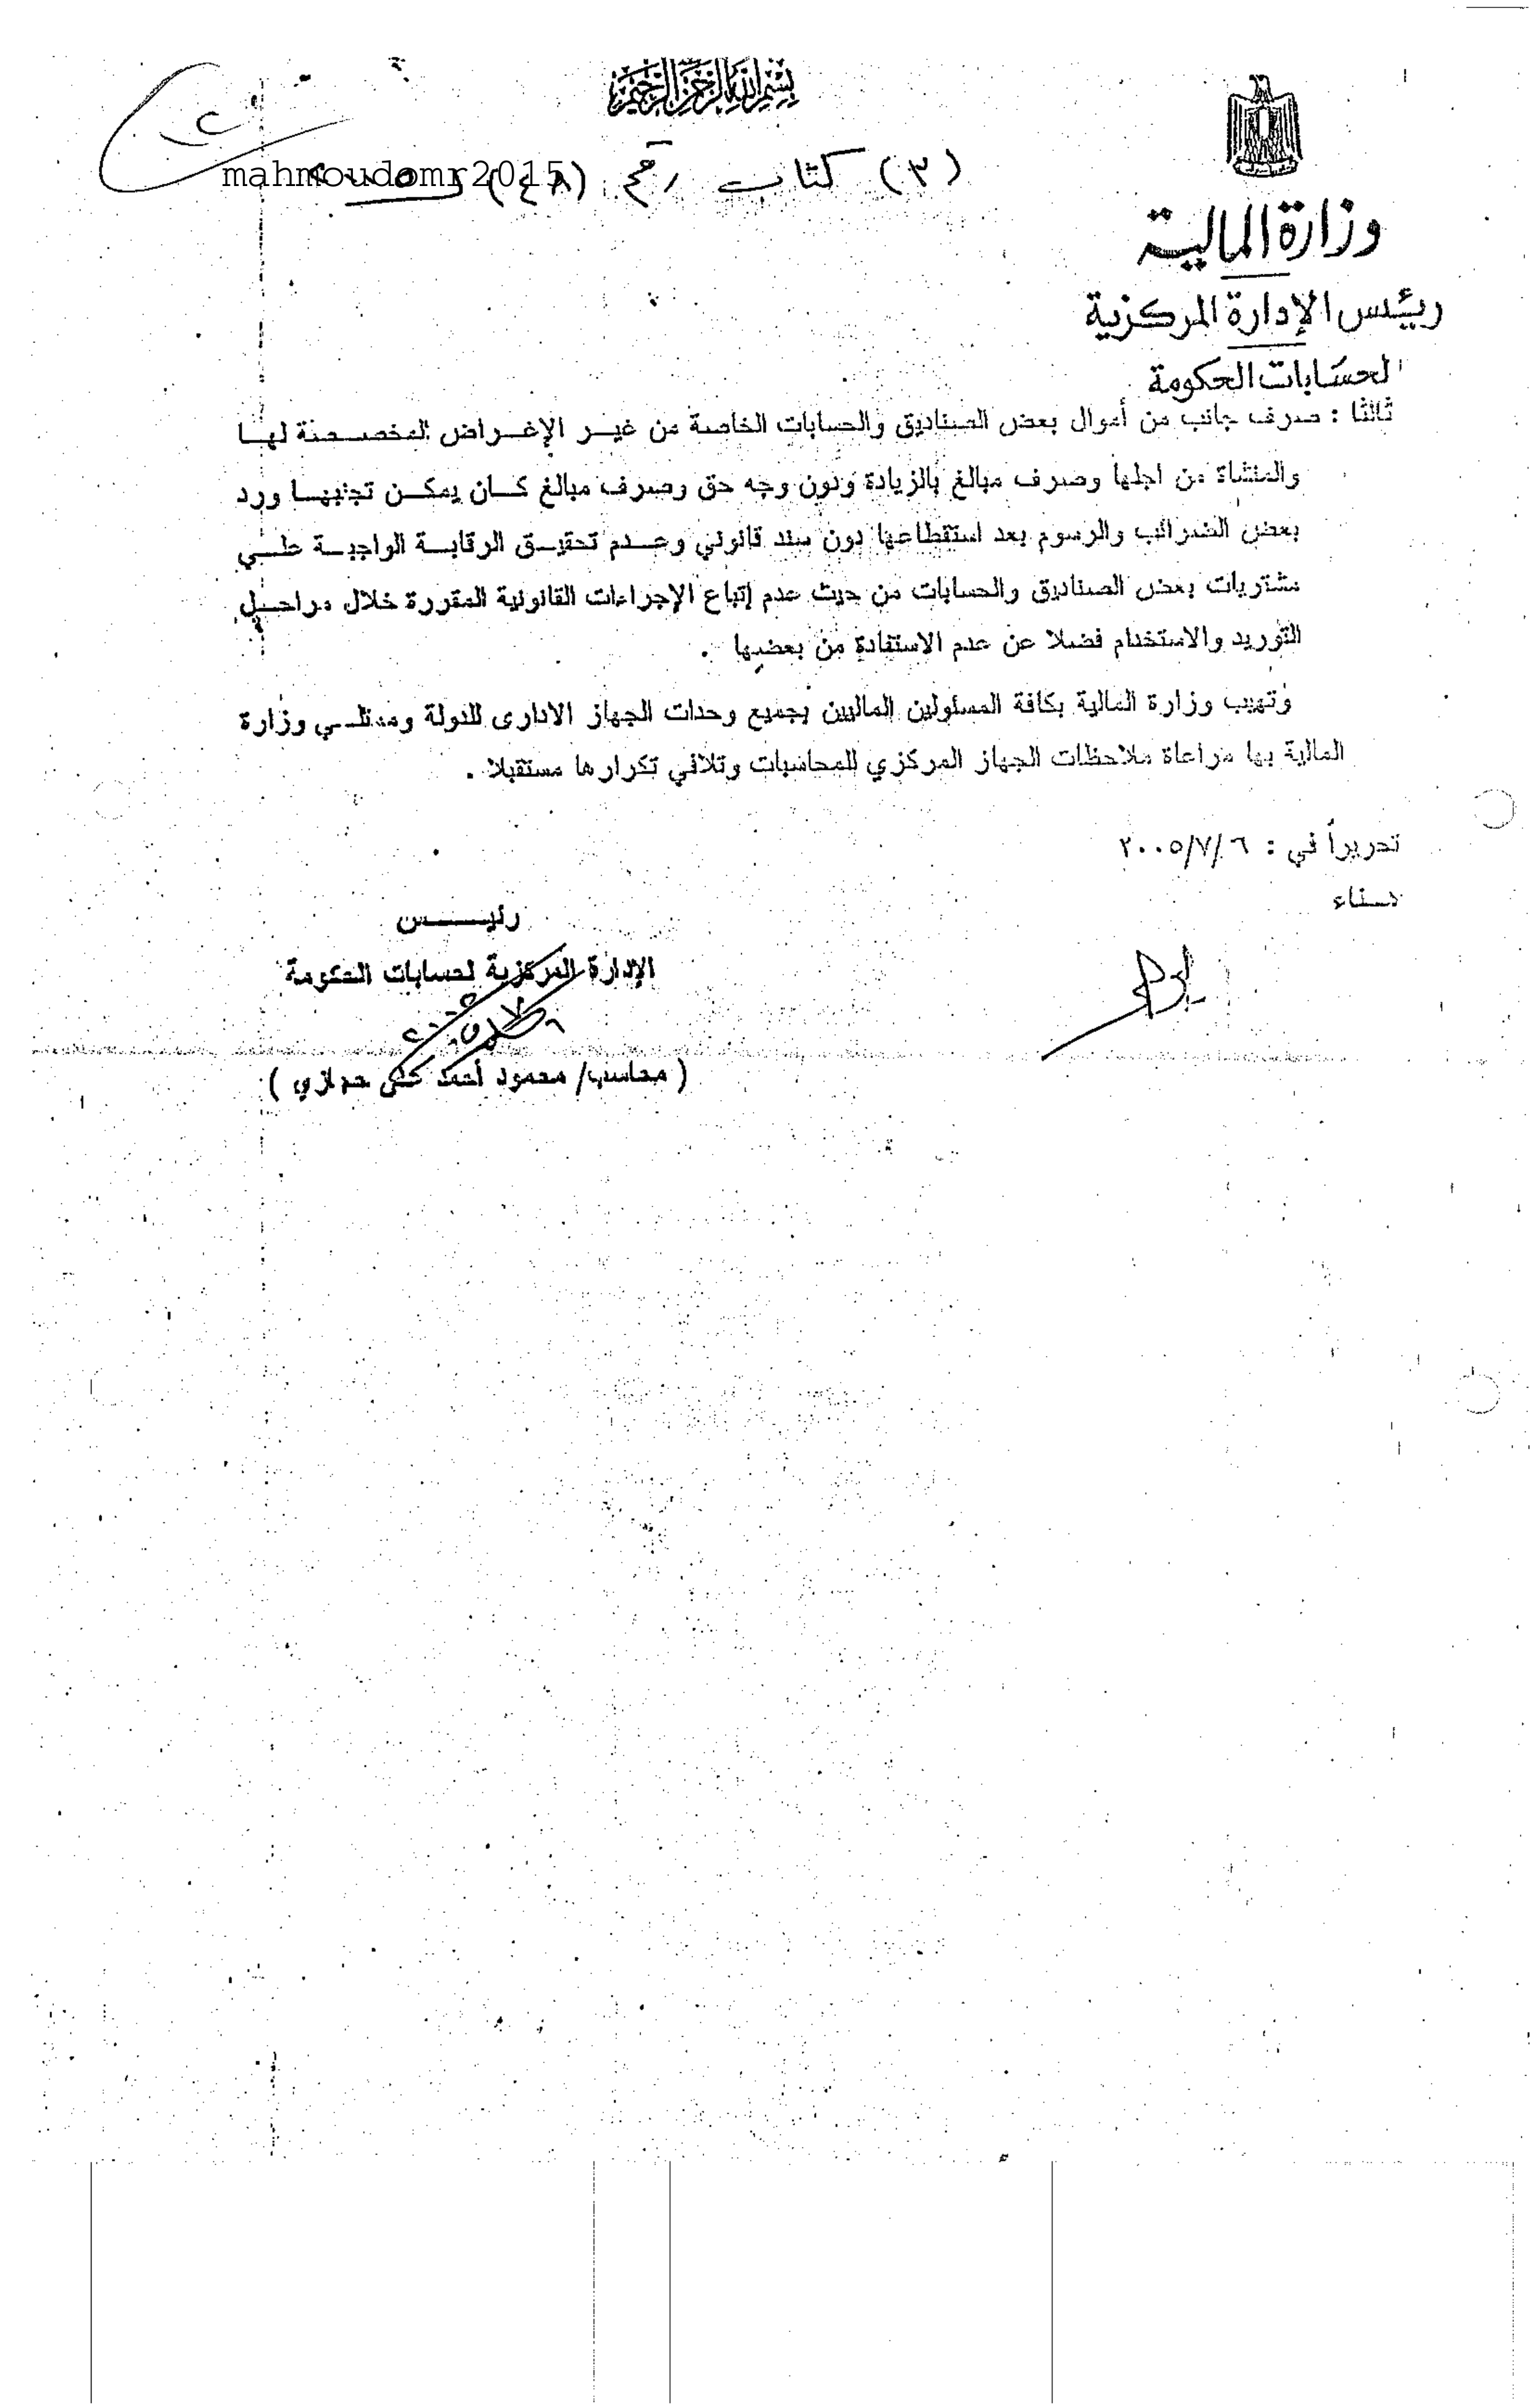 بسم الله الرحمن الرحيم
(٣) كتاب رقم (٤٨)
mahmoudomr2015
وزارة المالية
رئيس الإدارة المركزية
لحسابات الحكومة
ثالثا : صرف جانب من أموال بعض الصناديق والحسابات الخاصة من غير الإغراض المخصصة لها
والمنشاة من اجلها وصرف مبالغ بالزيادة ودون وجه حق وصرف مبالغ كان يمكن تجنبها ورد
بعض الضرائب والرسوم بعد استقطاعها دون سند قانوني وعدم تحقيق الرقابة الواجبة علي
مشتريات بعض الصناديق والحسابات من حيث عدم إتباع الإجراءات القانونية المقررة خلال مراحل
التوريد والاستخدام فضلا عن عدم الاستفادة من بعضها .
وتهيب وزارة المالية بكافة المسئولين الماليين بجميع وحدات الجهاز الادارى للدولة وممثلي وزارة
المالية بها مراعاة ملاحظات الجهاز المركزي للمحاسبات وتلافي تكرارها مستقبلا .
تحريراً في : ٢٠٠٥/٧/٦
سناء
رئيس
الإدارة المركزية لحسابات الحكومة
( محاسب/ محمود أحمد على حجازي )